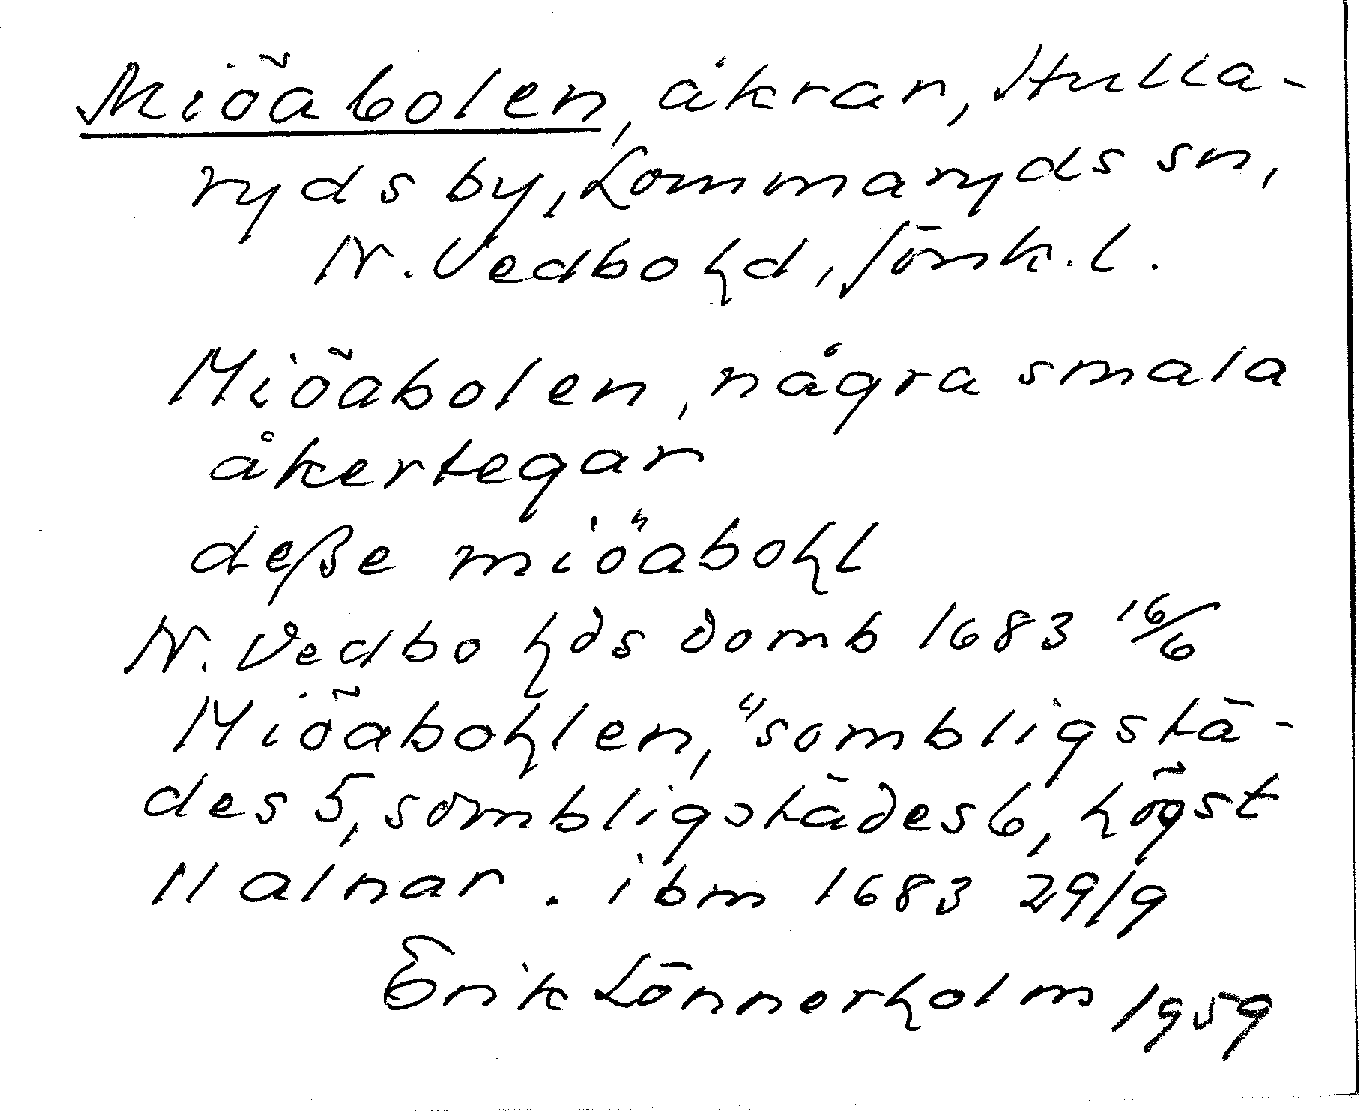 Miöabolen, åkrar, Hulla-
ryds by, Lommaryds sn,
N. Vedbohd, Jönk. l.
Miöabolen, några smala
åkertegar
deße miöabohl
N. Vedbohds domb 1683 16/6
Miöabohlen, "sombligstä-
des 5, sombligstädes 6, högst
11 alnar. ibm 1683 29/9
Erik Lönnerholm 1959